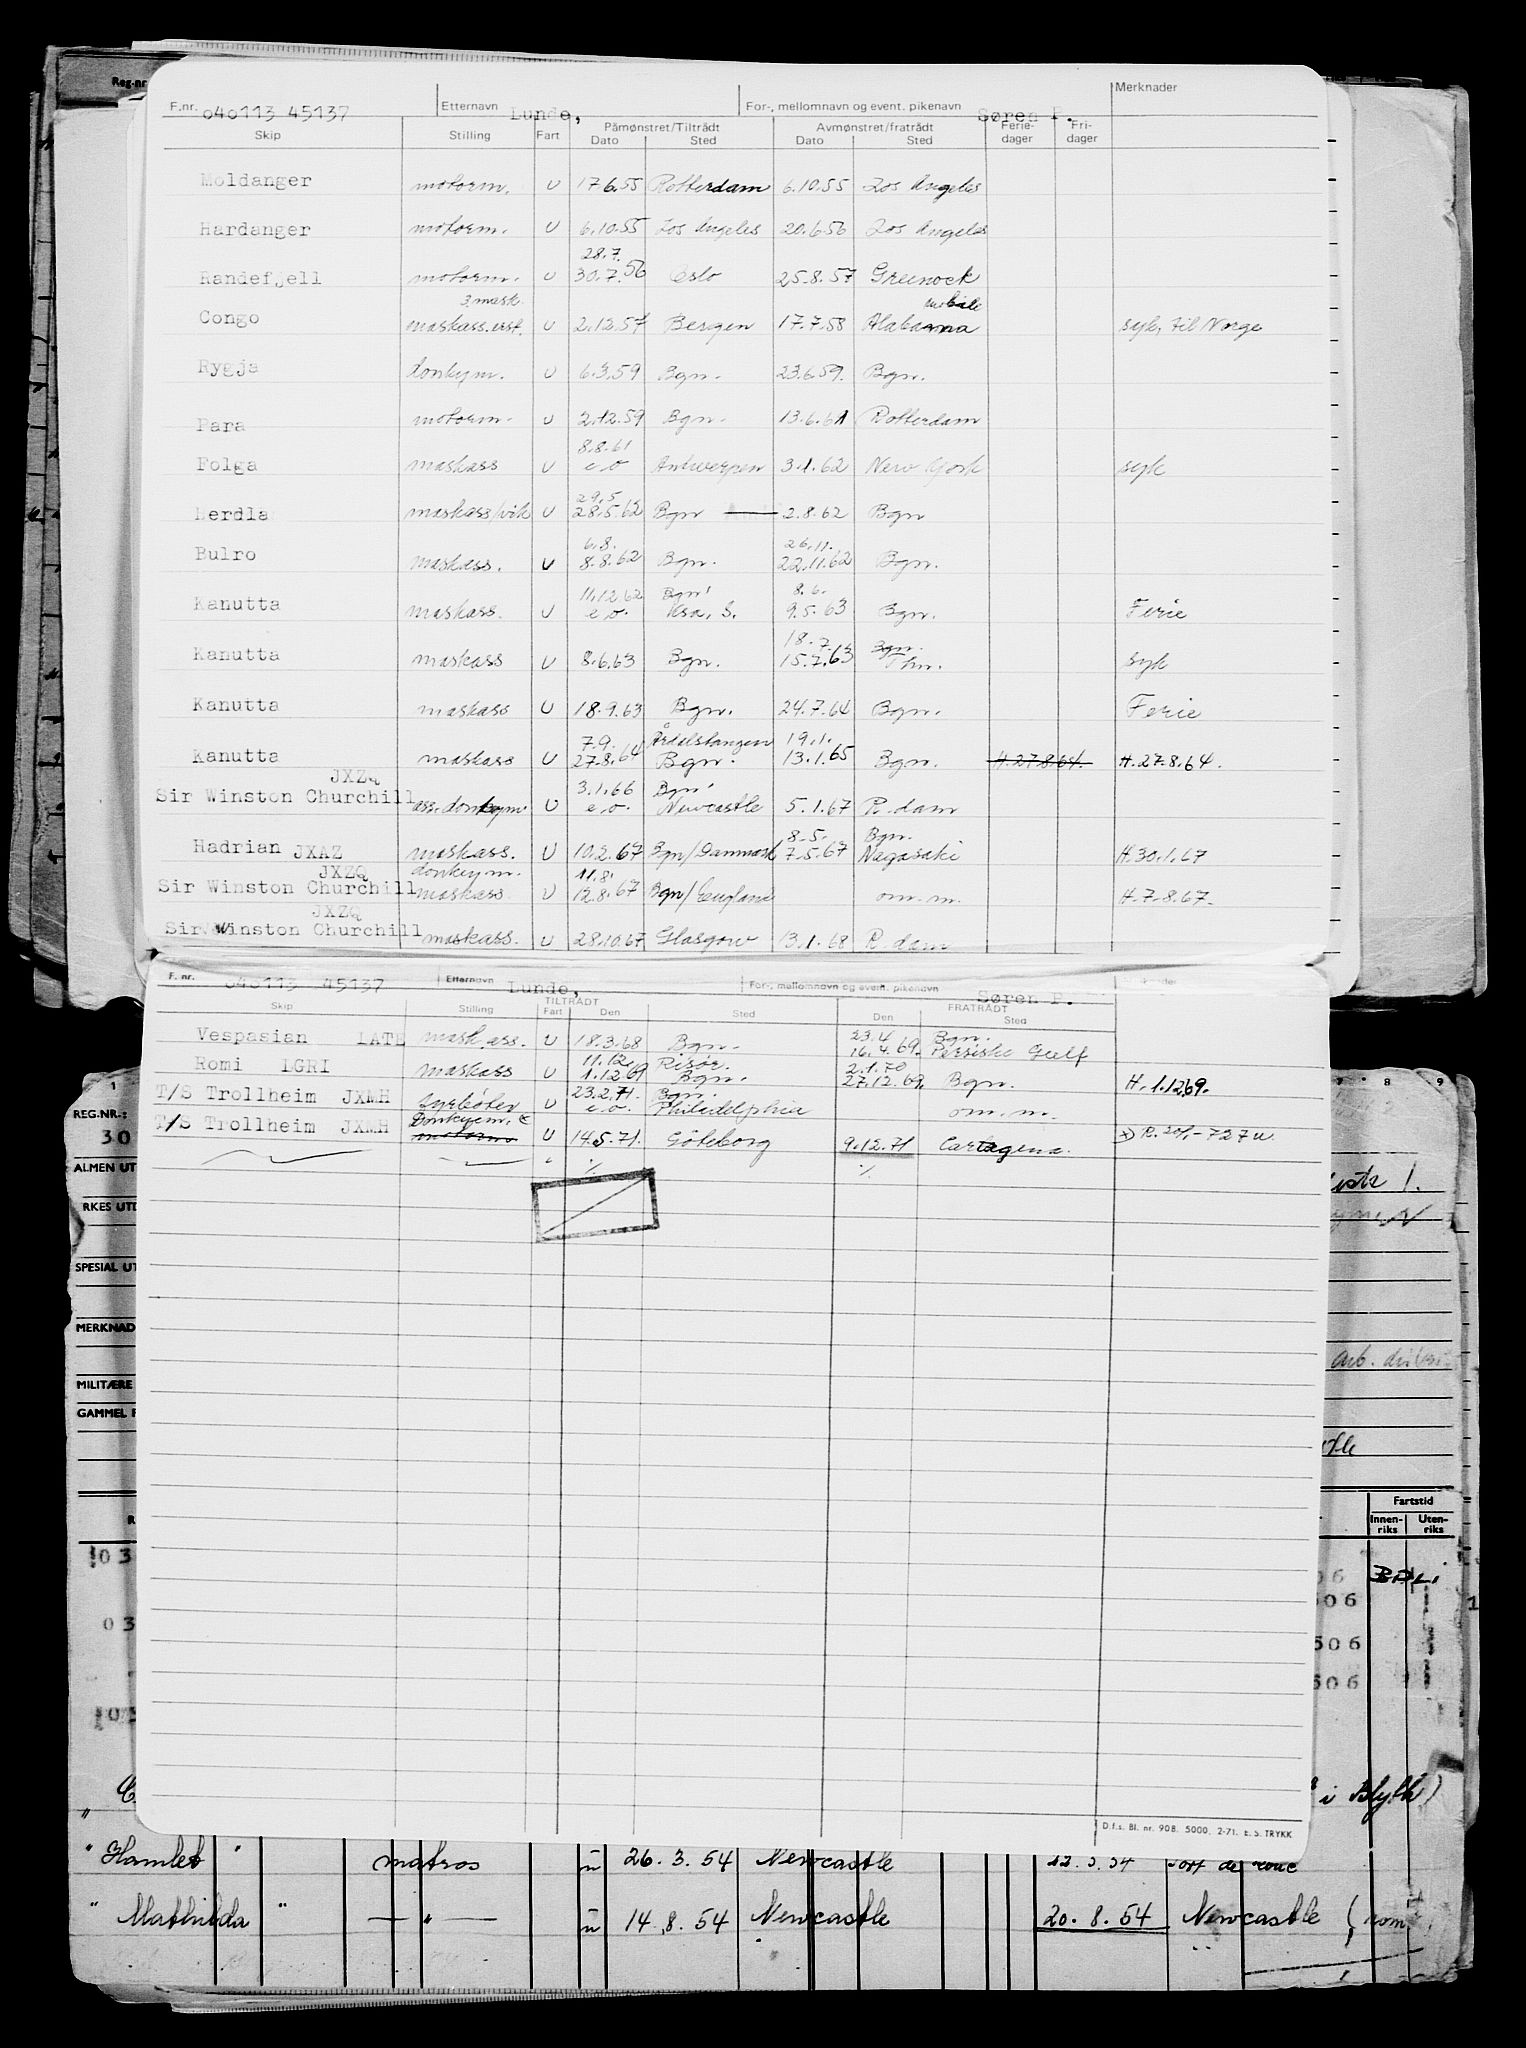 Reg.nr
F.nr. 040113 45137 Etternavn Lunde, For-, mellomnavn og event. pikenavn Søren P. Merknader
Skip Stilling Fart Påmønstret/Tiltrådt Dato Sted Avmønstret/fratrådt Dato Sted Ferie-dager Fri-dager
Moldanger motorm. U 17.6.55 Rotterdam 6.10.55 Los Angeles
Hardanger motorm. U 6.10.55 Los Angeles 20.6.56 Los Angeles
28.7.
Randefjell motorm. U 30.7.56 Oslo 25.8.57 Greenock
3 mask. mobile
Congo maskass.erst. U 2.12.57 Bergen 17.7.58 Alabama syk, til Norge
Rygja donkeym. U 6.3.59 Bgn. 23.6.59. Bgn.
Para motorm. U 2.12.59 Bgn. 13.6.61 Rotterdam
8.8.61
Folga maskass U e.o Antwerpen 3.1.62 New York syk
29.5
Herdla maskass/vik U 28.5.62 Bgn 2.8.62 Bgn
6.8. 26.11.
Bulro maskass. U 8.8.62 Bgn. 22.11.62 Bgn.
11.12.62 Bgn' 8.6.
Kanutta maskass. U e.o. S. 9.5.63 Bgn. Ferie
18.7. Bgn.
Kanutta maskass U 8.6.63 Bgn. 15.7.63 Thm. syk
Kanutta maskass U 18.9.63 Bgn. 24.7.64 Bgn. Ferie
7.9. Årdalstangen 19.1.
Kanutta maskass U 27.8.64 Bgn. 13.1.65 Bgn. H.27.8.64. H.27.8.64.
JXZQ 3.1.66 Bgn'
Sir Winston Churchill ass.donkeym. U e.o. Newcastle 5.1.67 R.dam
8.5. Bgn.
Hadrian JXAZ maskass. U 10.2.67 Bgn/Danmark 7.5.67 Nagasaki H.30.1.67
JXZQ donkeym. 11.8.
Sir Winston Churchill maskass. U 12.8.67 Bgn/England om.m. H.7.8.67.
JXZQ
Sir Winston Churchill maskass. U 28.10.67 Glasgow 13.1.68 R.dam
F. nr. 040113 45137 Etternavn Lunde, For-, mellomnavn og event. pikenavn Søren P.
Skip Stilling Fart TILTRÅDT Den Sted Den FRATRÅDT Sted
23.4 Bgn.
Vespasian LATE mask.ass. U 18.3.68 Bgn. 16.4.69. Persiske Gulf
11.12. Risør. 2.1.70
Romi LGRI maskass U 1.12.69 Bgn. 27.12.69. Bgn. H.1.12.69.
23.2.71. Bgn.
T/S Trollheim JXMH fyrbøter U e.o. Philadelphia om.m.
Donkeym.
T/S Trollheim JXMH motorm. U 14.5.71. Göteborg 9.12.71 Cartagena. x) R.201,-727w.
D.f.s. Bl. nr. 908. 5000. 2-71. E. S. TRYKK
1 7 8 9
REG.NR.:
30
ALMEN UT
RKES UTD
SPESIAL UT
MERKNAD
MILITÆRE
GAMMEL F
arb.
Fartstid
Innen-riks Uten-riks
03
06
506
03
506
506
i Blyth)
" Hamlet " matros u 26.3.54 Newcastle 12.5.54 Port de
" Mathilda " — " — u 14.8.54 Newcastle 20.8.54 Newcastle (rom